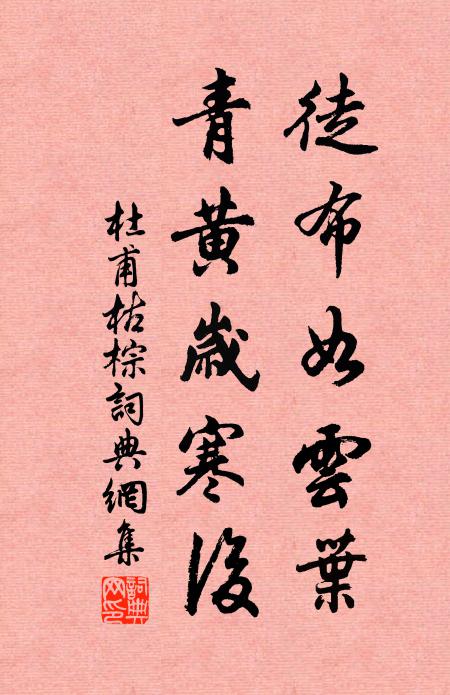 徒布如雲葉
青黄歲寒後
杜甫枯棕詞典網集
詞典网印